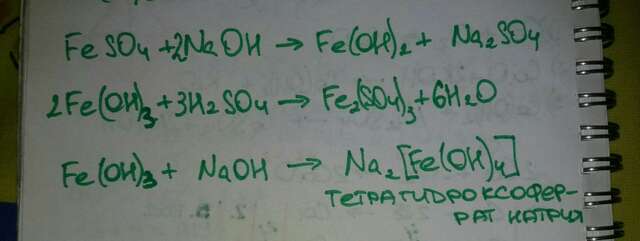 FeSO₄ + 2NaOH → Fe(OH)₂ + Na₂SO₄
2Fe(OH)₃ + 3H₂SO₄ → Fe₂(SO₄)₃ + 6H₂O
Fe(OH)₃ + NaOH → Na₂[Fe(OH)₄]
ТЕТРАГИДРОКСОФЕР-
РАТ НАТРИЯ